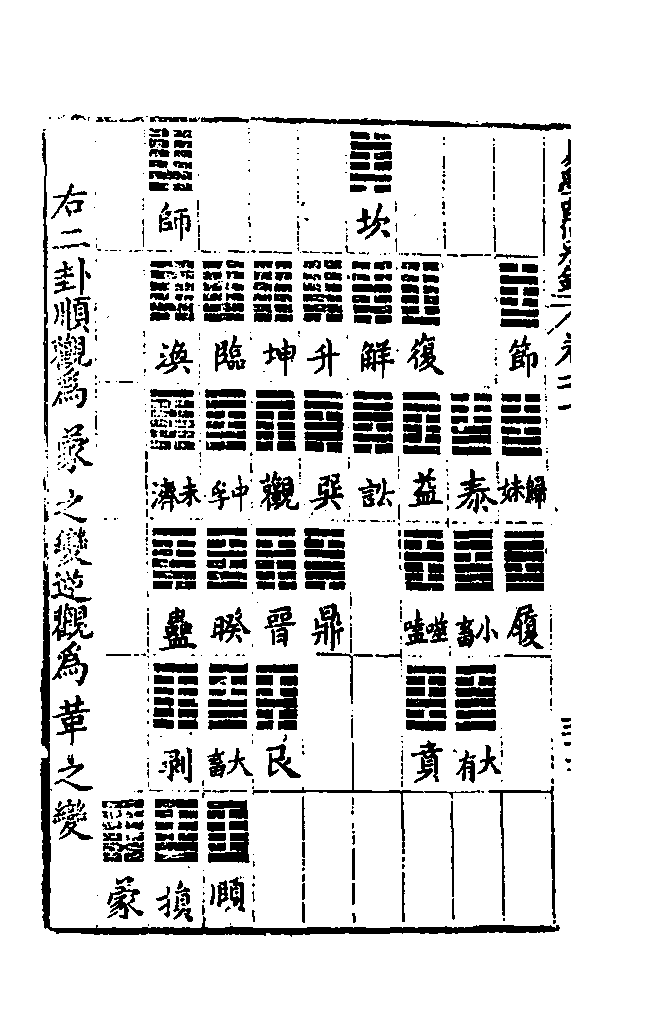 坎 師
節 復 解 升 坤 臨 渙
歸妹 泰 益 訟 巽 觀 中孚 未濟
履 小畜 噬嗑 鼎 晉 睽 蠱
大有 賁 艮 大畜 剥
頤 損 蒙
右二卦順觀為蒙之變逆觀為革之變